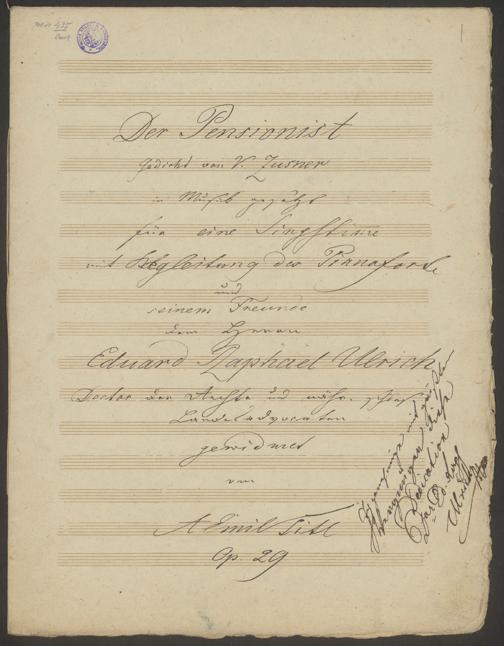 Der Pensionist
Gedicht von V. Zusner
in Musik gesetzt
für eine Singstime
mit Begleitung des Pianoforte
und
seinem Freunde
dem Herrn
Eduard Raphael Ulrich
Doctor der Rechte und mähr. schles
Landesadvocaten
gewidmet
von
A Emil Titl
Op. 29
mit
Vergnügen diese
Dedication